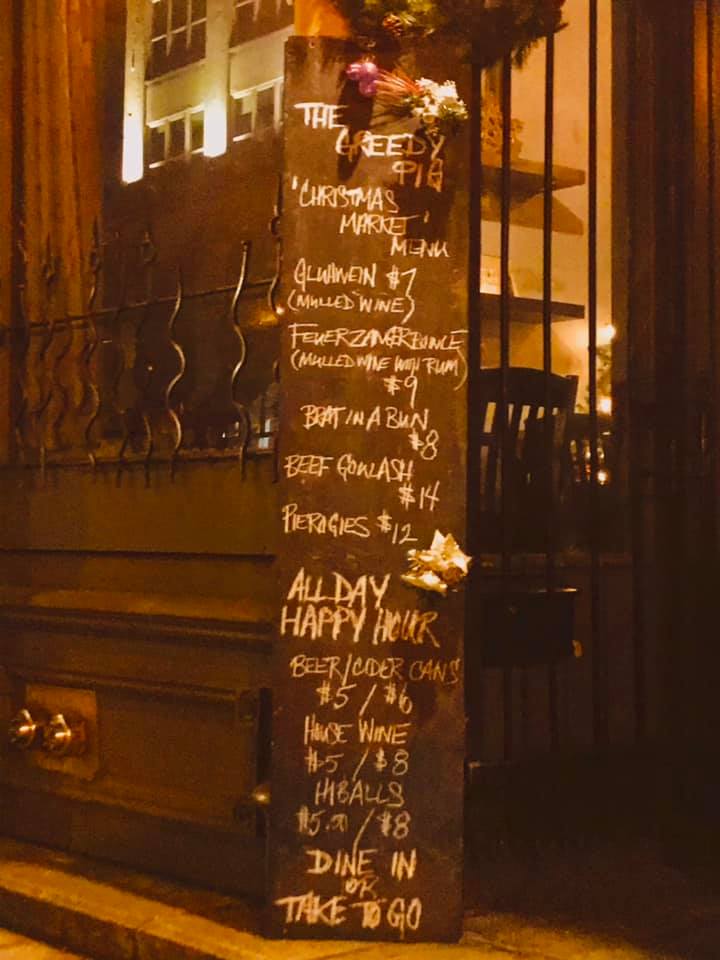 THE
GREEDY
PIG
'CHRISTMAS
MARKET'
MENU
GLUHWEIN $7
(MULLED WINE)
FEUERZANGERBOWLE
(MULLED WINE WITH RUM)
$9
BRAT IN A BUN
$8
BEEF GOULASH
$14
PIEROGIES $12
ALL DAY
HAPPY HOUR
BEER/CIDER CANS
$5 / $6
HOUSE WINE
$5 / $8
HIBALLS
$5.00 / $8
DINE IN
OR
TAKE TO GO